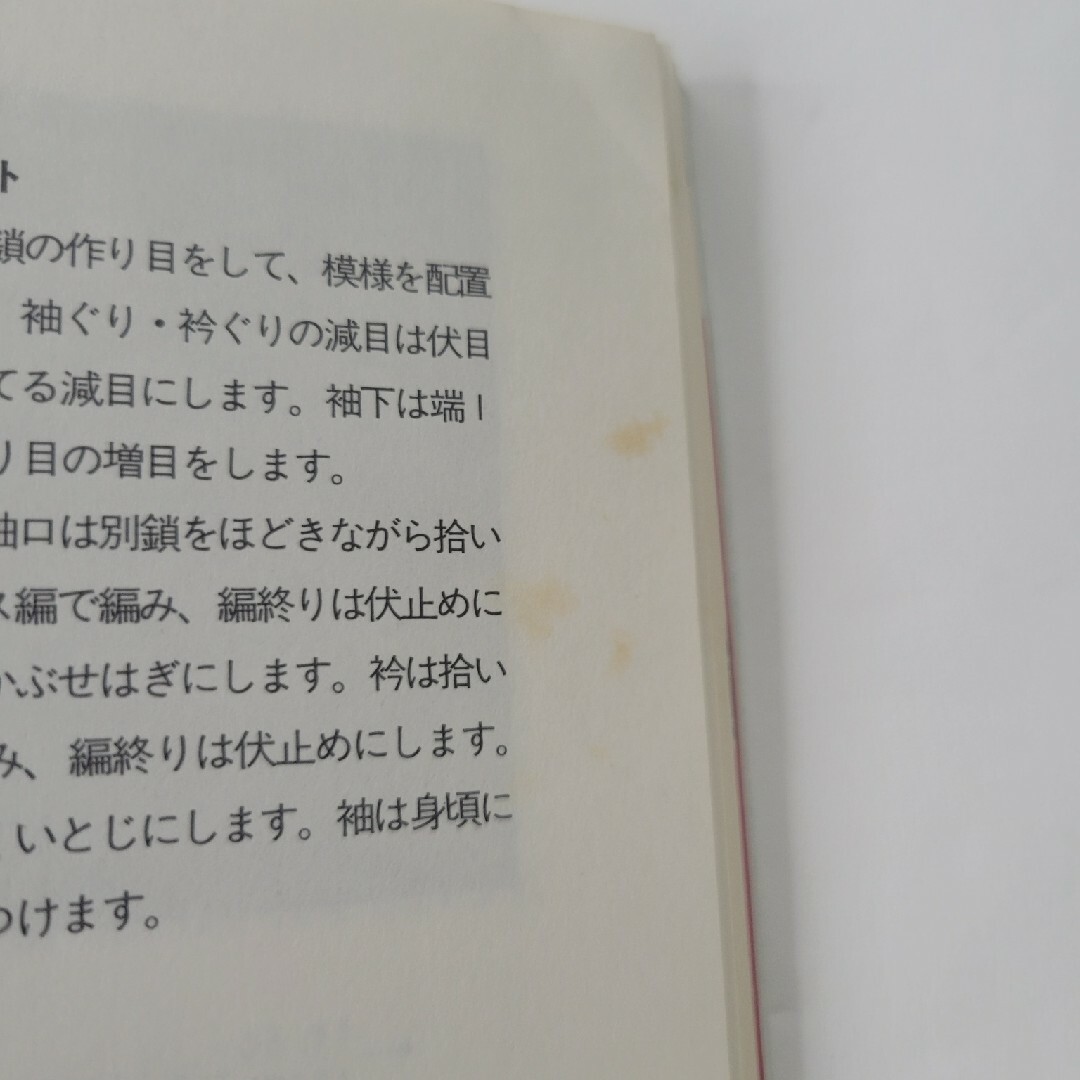 ト
鎖の作り目をして、模様を配置
袖ぐり・衿ぐりの減目は伏目
てる減目にします。袖下は端1
り目の増目をします。
袖口は別鎖をほどきながら拾い
ス編で編み、編終りは伏止めに
かぶせはぎにします。衿は拾い
み、編終りは伏止めにします。
くいとじにします。袖は身頃に
つけます。